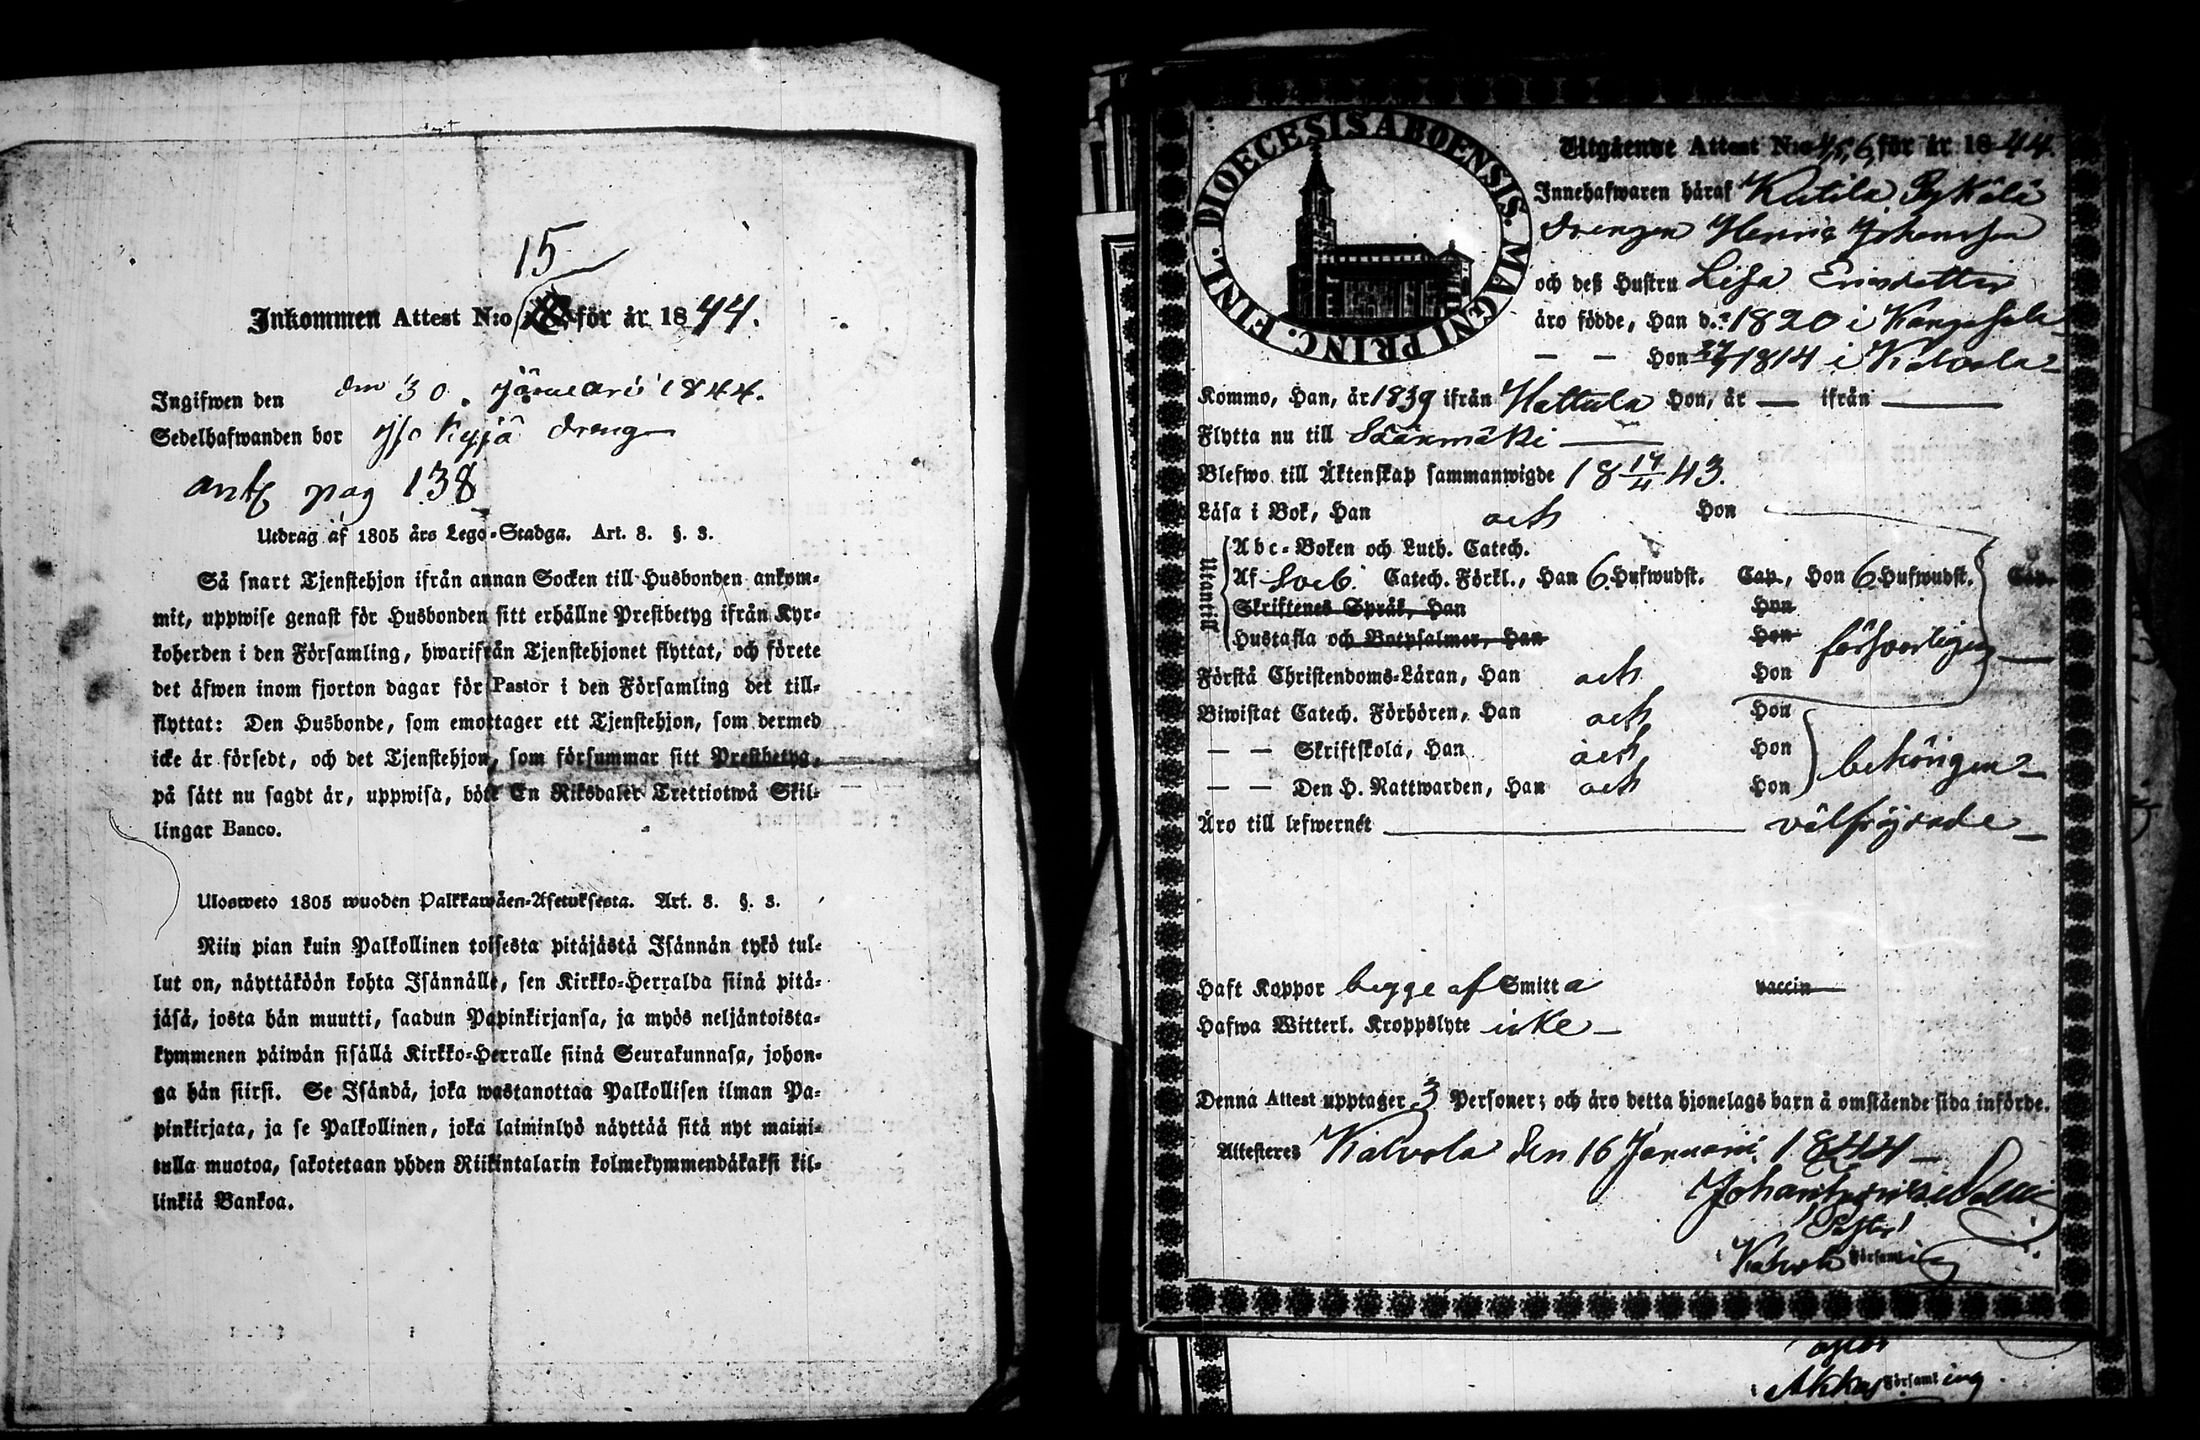 15
Inkommen Attest N:o för år 1844.
Ingifwen den den 30. Januari 1844.
Sedelhafwanden bor Isokyjä dreng
antf pag 138
Utdrag af 1805 års Lego-Stadga. Art. 8. §. 3.
Så snart Tjenstehjon ifrån annan Socken till Husbonden ankom-
mit, uppwise genast för Husbonden sitt erhållne Prestbetyg ifrån Kyr-
koherden i den Församling, hwarifrån Tjenstehjonet flyttat, och förete
det äfwen inom fjorton dagar för Pastor i den Församling det till-
flyttat: Den Husbonde, som emottager ett Tjenstehjon, som dermed
icke är försedt, och det Tjenstehjon, som försummar sitt Prestbetyg,
på sätt nu sagdt är, uppwisa, böte En Riksdaler Trettiotwå Skil-
lingar Banco.
Ulosweto 1805 wuoden Palkkawäen-Asetuksesta. Art. 8. §. 3.
Niin pian kuin Palkollinen toisesta pitäjästä Isännän tykö tul-
lut on, näyttäköön kohta Isännälle, sen Kirkko-Herralda siinä pitä-
jäsä, josta hän muutti, saadun Papinkirjansa, ja myös neljäntoista-
kymmenen päiwän sisällä Kirkko-Herralle siinä Seurakunnasa, johon-
ga hän siirsi. Se Isändä, joka wastanottaa Palkollisen ilman Pa-
pinkirjata, ja se Palkollinen, joka laiminlyö näyttää sitä nyt maini-
tulla muotoa, sakotetaan yhden Riikintalarin kolmekymmendäkaksi kil-
linkiä Bankoa.
DIOECESIS ABOENSIS. MAGNI PRINC. FINL.
Utgående Attest N:o 456 för år 1844.
Innehafwaren häraf Kutila Pykälä
Drengen Henric Johansson
och deß Hustru Lisa Ericsdotter
äro födde, Han d. 1820 i Kangasala
— — Hon 1814 i Kalvola
Kommo, Han, år 1839 ifrån Hattula Hon, år — ifrån —
Flytta nu till Sääxmäki
Blefwo till Äktenskap sammanwigde 18 17/4 43.
Läsa i Bok, Han och Hon
Utantill
Abc-Boken och Luth. Catech.
Af Sveb. Catech. Förkl., Han 6 Hufwudst. Cap., Hon 6 Hufwudst. Cap.
Skriftenes Språk, Han Hon
Hustafla och Botpsalmer, Han Hon försvarligen
Förstå Christendoms-Läran, Han och Hon
Biwistat Catech. Förhören, Han och Hon
— — Skriftskola, Han och Hon behörigen
— — Den H. Nattwarden, Han och Hon
Äro till lefwernet välfrejdade
Haft Koppor begge af Smitta vaccin
Hafwa Witterl. Kroppslyte icke
Denna Attest upptager 3 Personer; och äro detta hjonelags barn å omstående sida införde.
Attesteres Kalvola den 16 Januarii 1844
Pastor
i Kalvola Församling
Pastor
i Akkas Församling